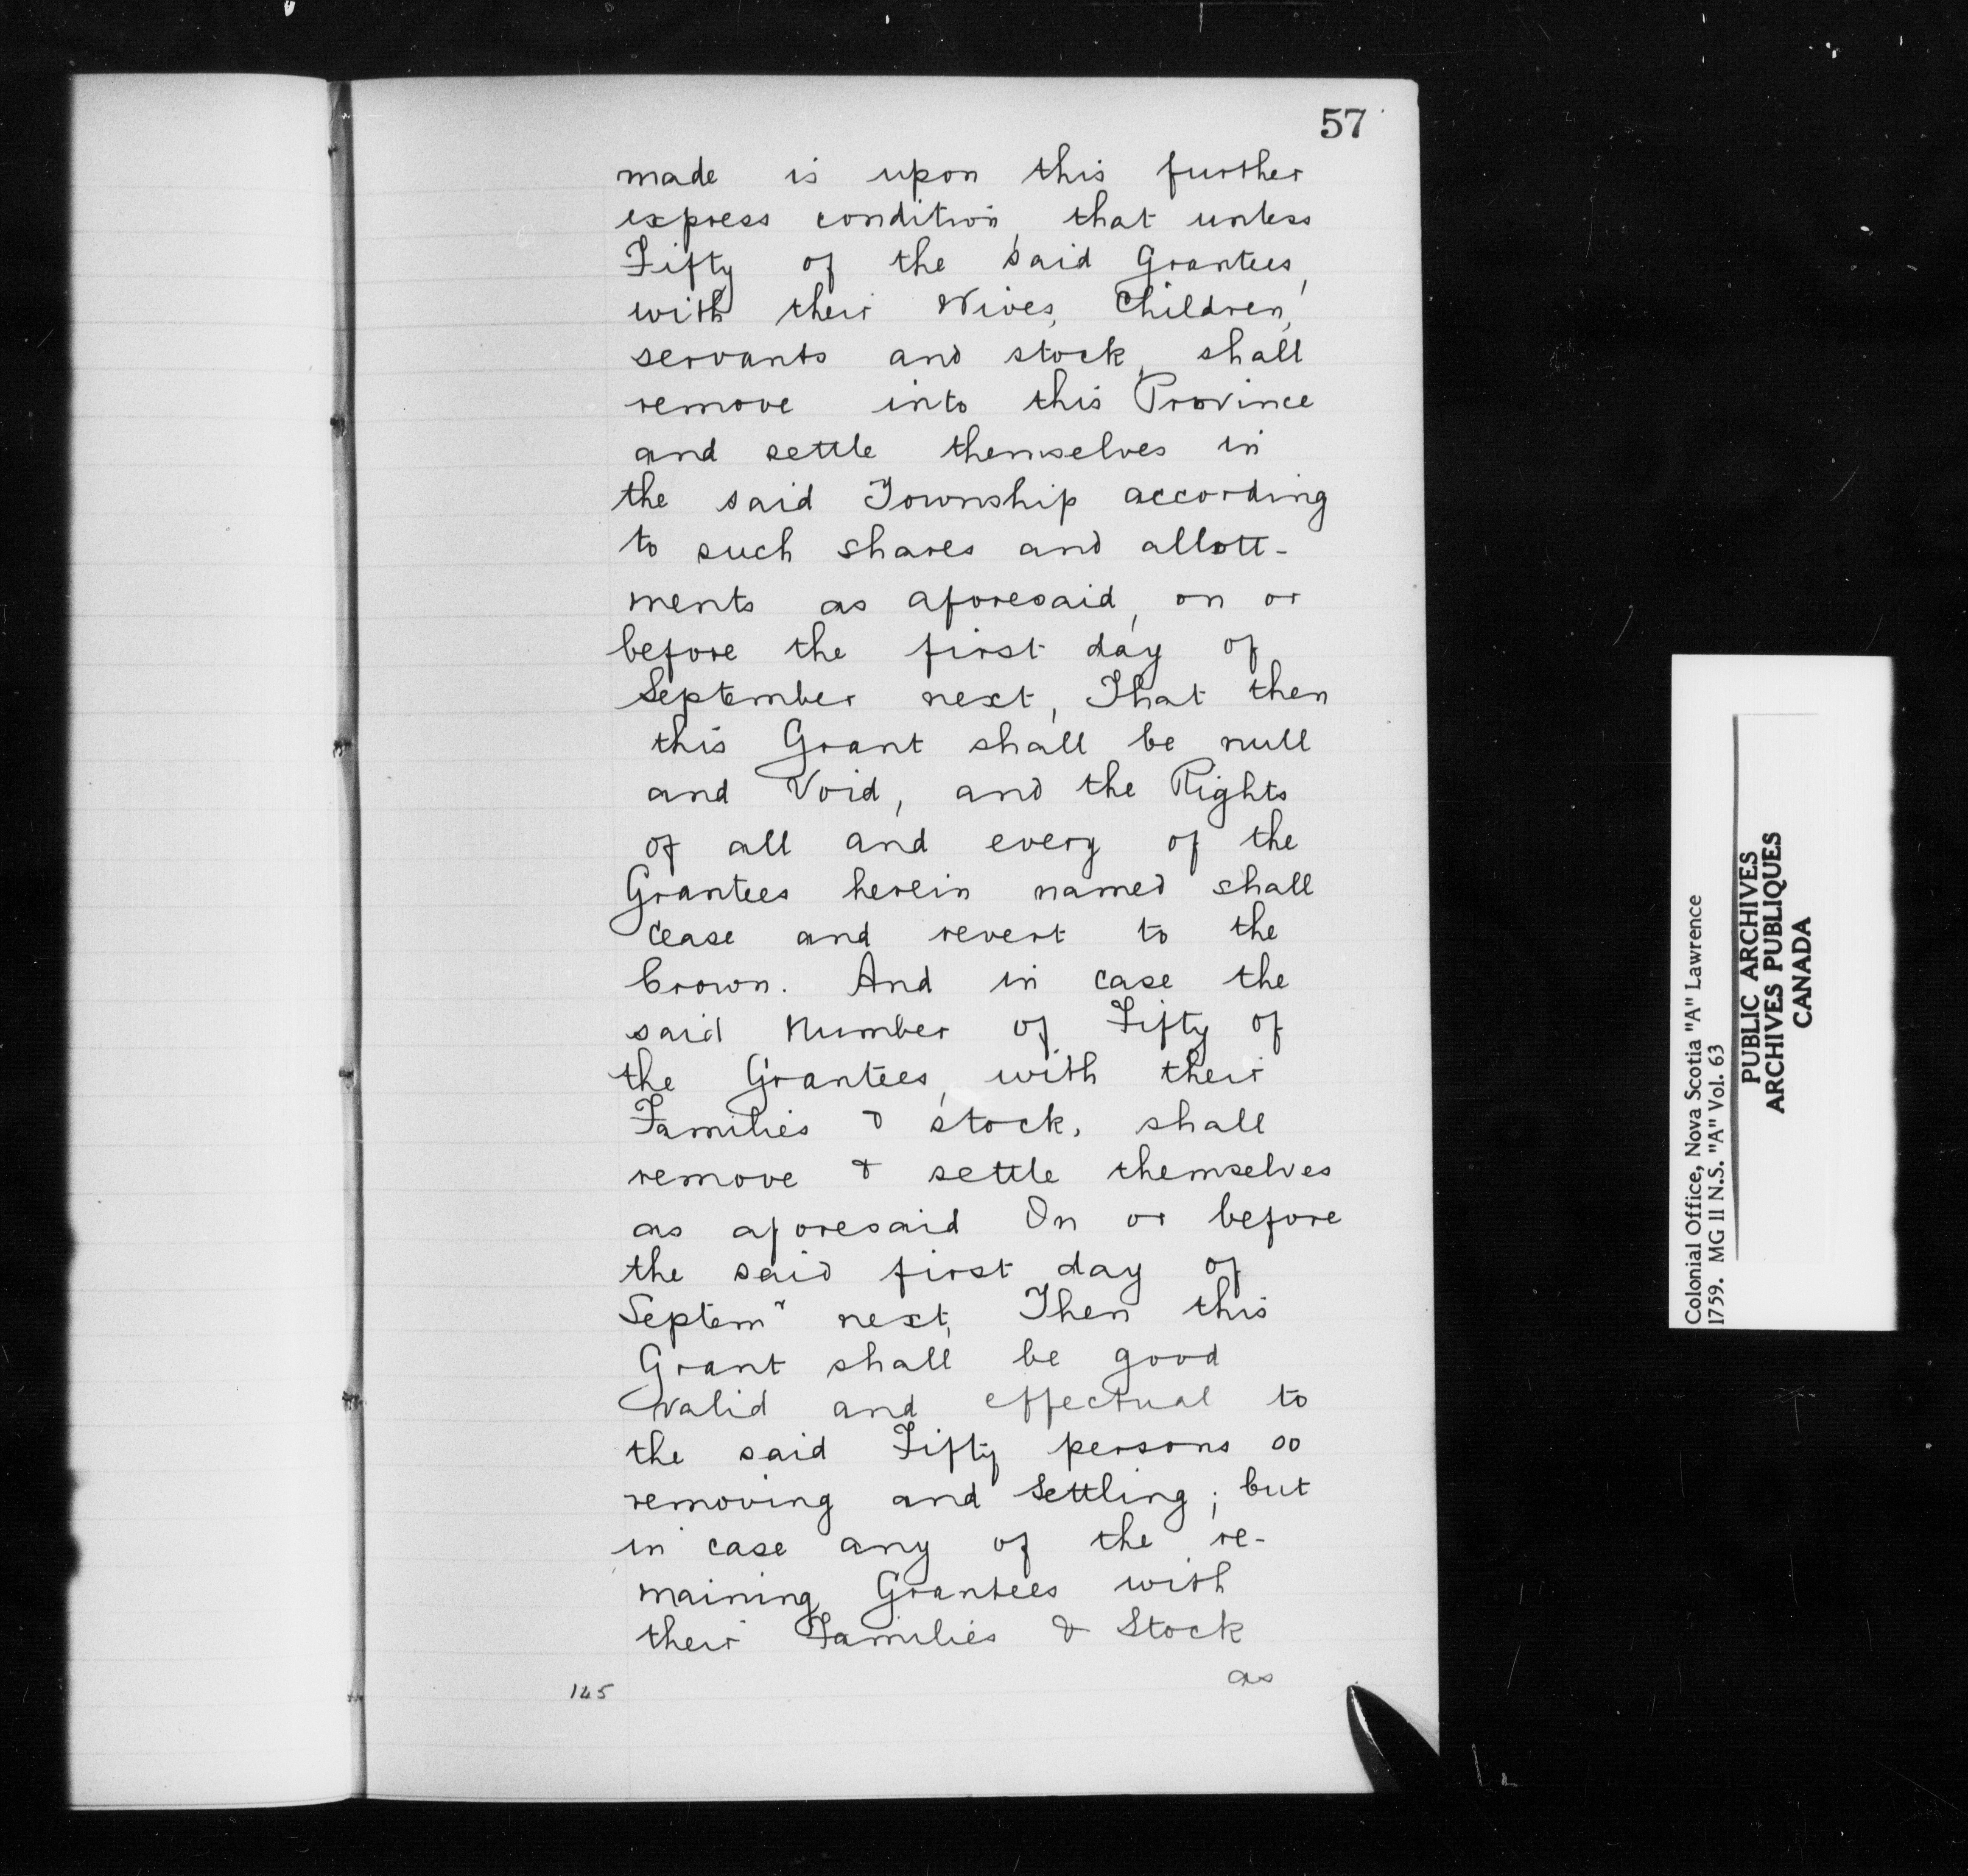 57
made is upon this further
express condition, that unless
Fifty of the said Grantees,
with their Wives, Children,
servants and stock, shall
remove into this Province
and settle themselves in
the said Township according
to such shares and allott-
ments as aforesaid, on or
before the first day of
September next, That then
this Grant shall be null
and Void, and the Rights
of all and every of the
Grantees herein named shall
cease and revert to the
Crown. And in case the
said Number of Fifty of
the Grantees, with their
Families & stock, shall
remove & settle themselves
as aforesaid On or before
the said first day of
Septem" next, Then this
Grant shall be good
valid and effectual to
the said Fifty persons so
removing and Settling; but
in case any of the re-
maining Grantees with
their Families & Stock
as
145
Colonial Office, Nova Scotia "A" Lawrence
1759. MG 11 N.S. "A" Vol. 63
PUBLIC ARCHIVES
ARCHIVES PUBLIQUES
CANADA